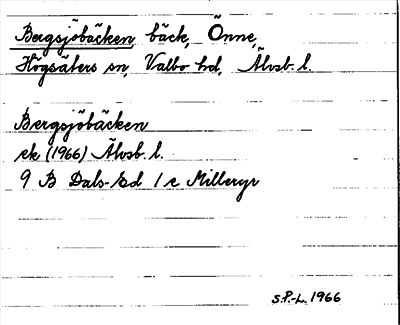 Bergsjöbäcken, bäck, Önne,
Högsäters sn, Valbo hd, Älvsb. l.
Bergsjöbäcken
ek (1966) Älvsb. l.
9 B Dals-Ed 1 c Milleryr
S.P.-L. 1966